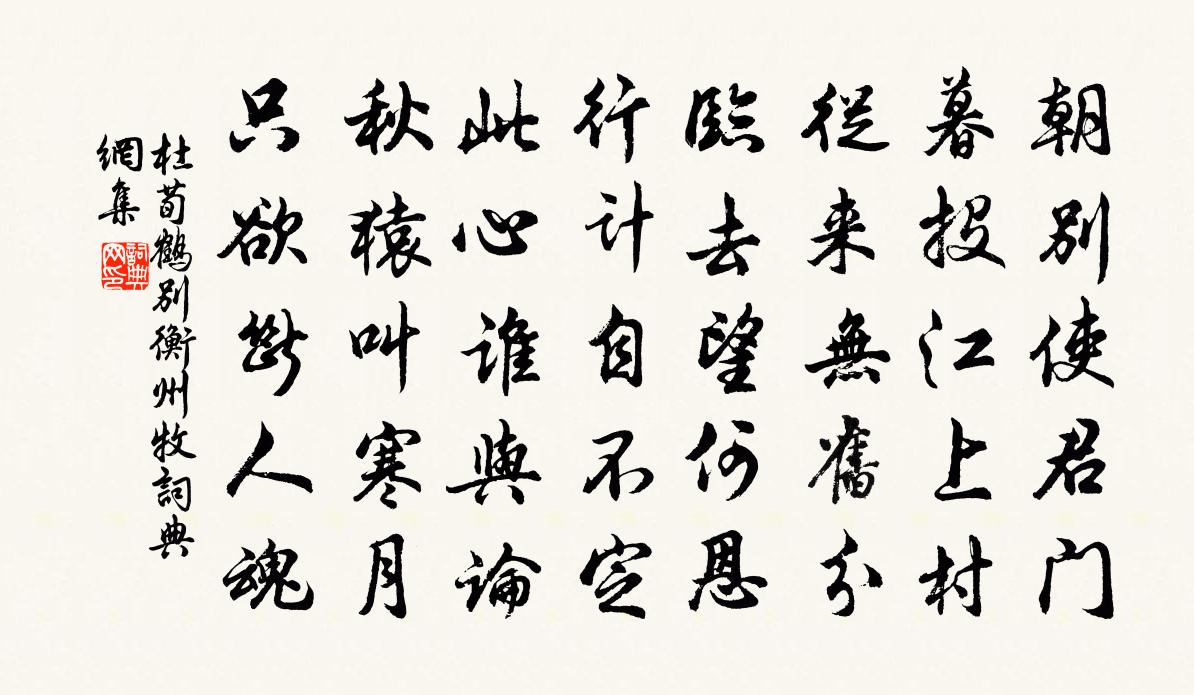 朝别使君门
暮投江上村
從来無舊分
臨去望何恩
行计自不定
此心谁與論
秋猿叫寒月
只欲斷人魂
杜荀鶴别衡州牧詞典
網集
詞典
网印